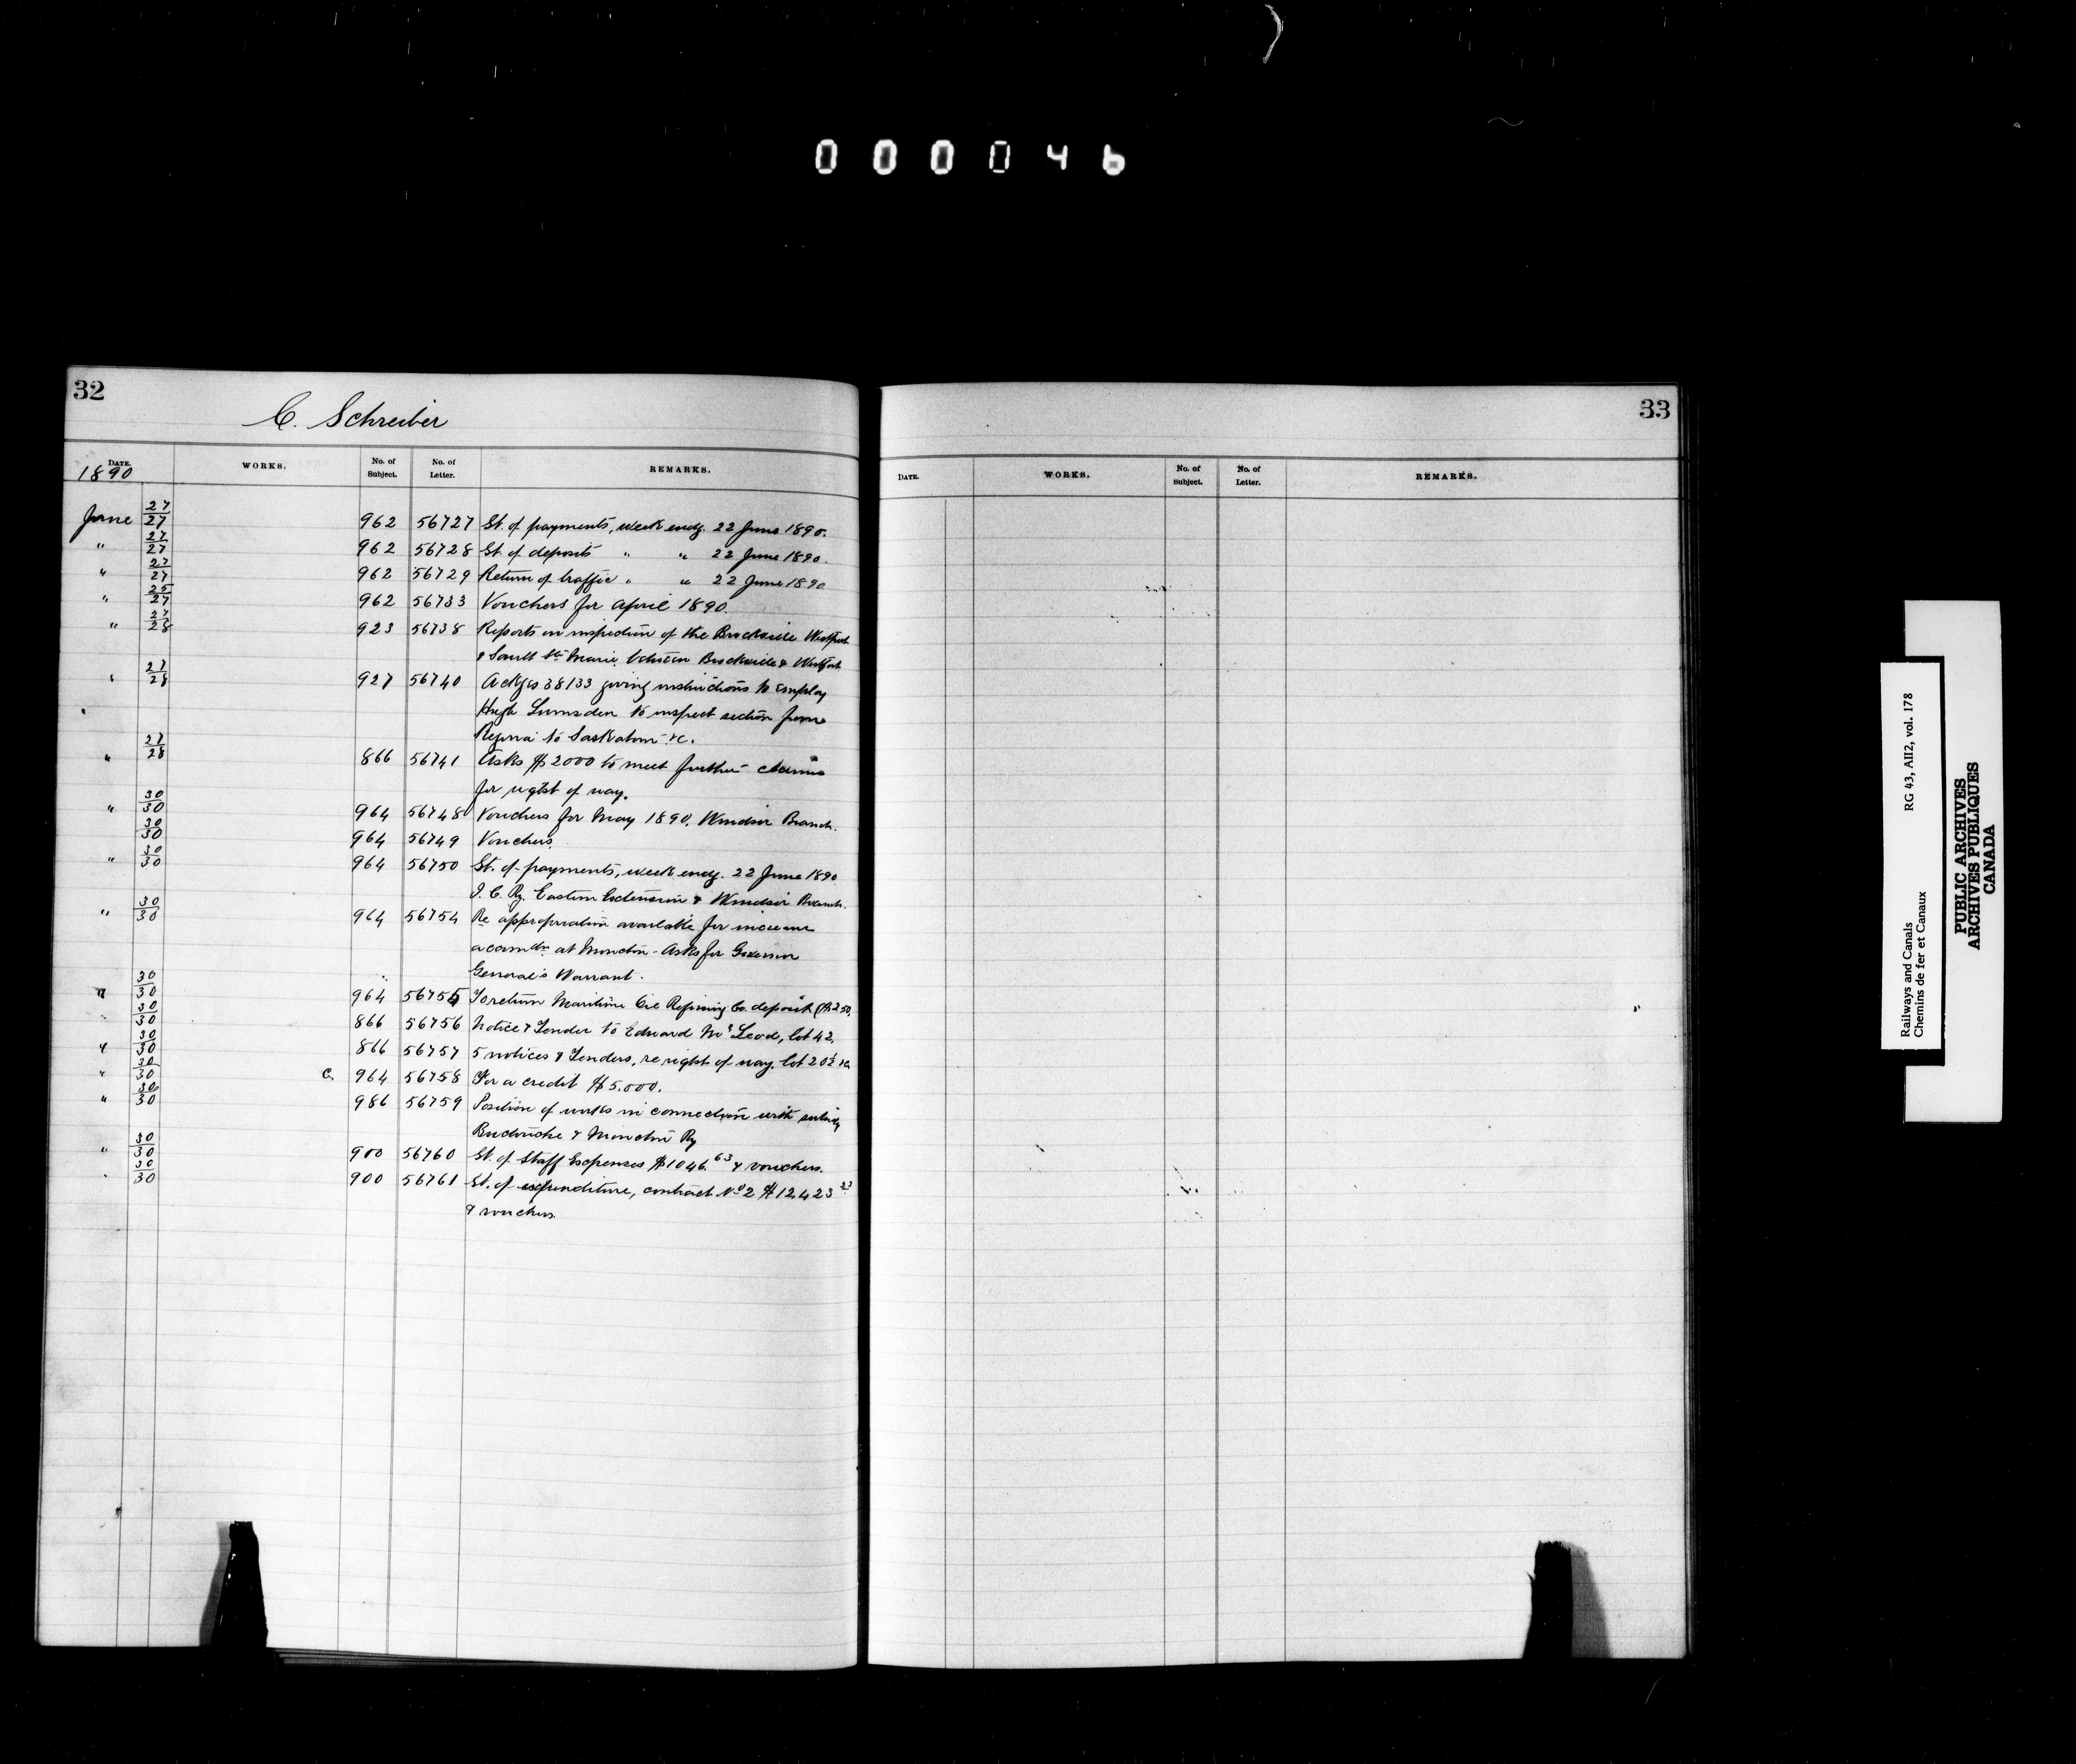 000046
32
C. Schreiber
DATE. WORKS. No. of Subject. No. of Letter. REMARKS.
1890
June 27/27 962 56727 St. of payments, week endg. 22 June 1890.
" 27/27 962 56728 St. of deposits " " 22 June 1890.
" 27/27 962 56729 Return of traffic " " 22 June 1890
" 25/27 962 56733 Vouchers for April 1890.
" 27/28 923 56738 Reports on inspection of the Brockville Westport
& Sault Ste Marie between Brockville & Westport
" 27/28 927 56740 Ackges 38133 giving instructions to employ
Hugh Lumsden to inspect section from
Regina to Saskatoon &c.
" 27/28 866 56741 Asks $2000 to meet further claims
for right of way.
" 30/30 964 56748 Vouchers for May 1890. Windsor Branch.
30/30 964 56749 Vouchers.
" 30/30 964 56750 St. of payments, week endg. 22 June 1890
I. C. Ry. Eastern Extension & Windsor Branch.
" 30/30 964 56754 Re appropriation available for increase
accomdn. at Moncton - Asks for Governor
General's Warrant.
" 30/30 964 56755 To return Maritime Oil Refining Co. deposit ($250.
" 30/30 866 56756 Notice & Tender to Edward McLeod, lot 42.
" 30/30 866 56757 5 notices & Tenders, re right of way. lot 20½ &c
" 30/30 C. 964 56758 For a credit $5.000.
" 30/30 986 56759 Position of works in connection with subsidy
Buctouche & Moncton Ry
" 30/30 900 56760 St. of Staff Expenses $1046.63 & vouchers.
" 30/30 900 56761 St. of expenditure, contract No 2 $12423.33
& vouchers.
33
DATE. WORKS. No. of Subject. No. of Letter. REMARKS.
Railways and Canals RG 43, AII2, vol. 178
Chemins de fer et Canaux
PUBLIC ARCHIVES
ARCHIVES PUBLIQUES
CANADA